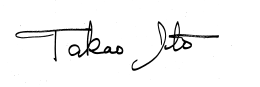 Takao Ito